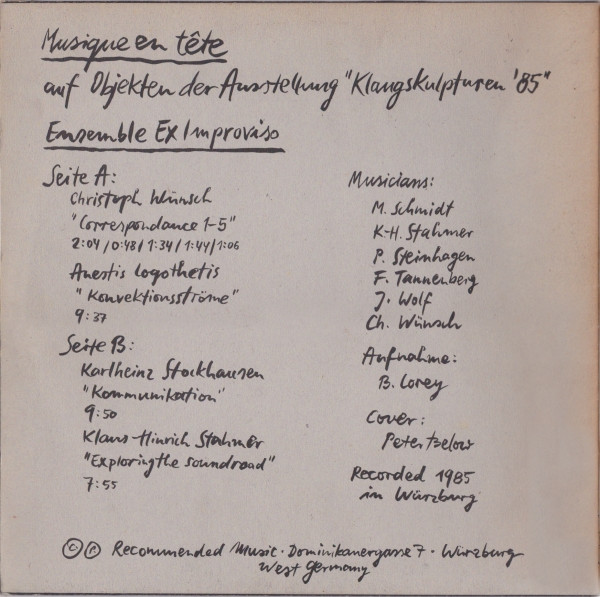 Musique en tête
auf Objekten der Ausstellung "Klangskulpturen '85"
Ensemble Ex Improviso
Seite A:
Christoph Wünsch
"Correspondance 1-5"
2:04 / 0:48 / 1:34 / 1:44 / 1:06
Anestis Logothetis
"Konvektionsströme"
9:37
Seite B:
Karlheinz Stockhausen
"Kommunikation"
9:50
Klaus-Hinrich Stahmer
"Exploring the soundroad"
7:55
Musicians:
M. Schmidt
K-H. Stahmer
P. Steinhagen
F. Tannenberg
J. Wolf
Ch. Wünsch
Aufnahme:
B. Lorey
Cover:
Peter Tzelow
Recorded 1985
in Würzburg
© ℗ Recommended Music · Dominikanergasse 7 · Würzburg
West Germany